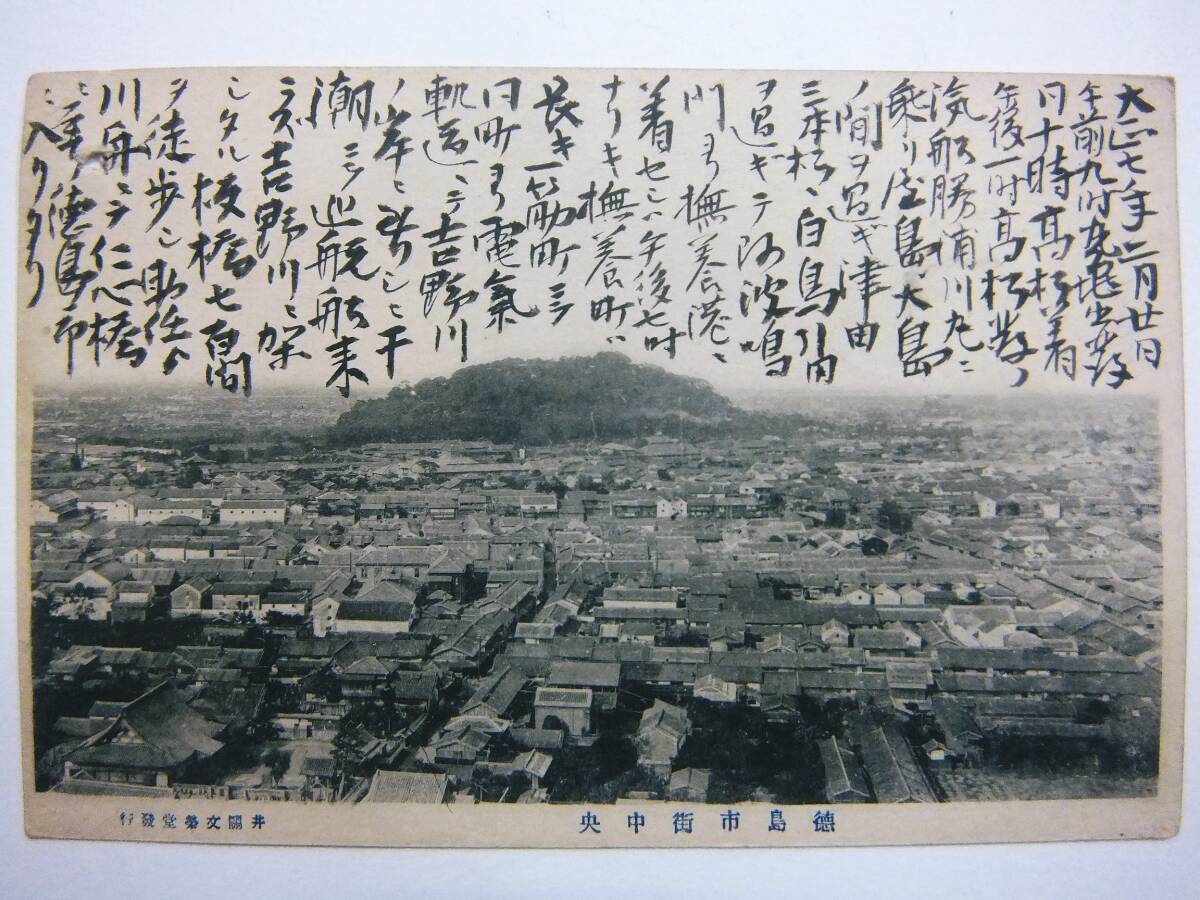 大正七年二月廿日
午前九时丸亀出發
同十時高松着
午後一时高松發ノ
汽船勝浦川丸ニ
乘リ屋島、大島
ノ間ヲ過ギ津田
三本松、白鳥引田
ヲ過ギテ阿波鳴
門ヨリ撫養港ニ
着セシハ午後七时
ナリキ撫養町ハ
長キ一筋町ニテ
同町ヨリ電氣
軌道ニテ吉野川
ノ岸ニ到リシモ干
潮ニテ巡航船来
ラズ吉野川ニ架
シタル板橋七百間
ヲ徒歩シ助任ヨリ
川舟ニテ仁心橋
徳島市
ニ入リタリ
德島市街中央
井關文榮堂發行